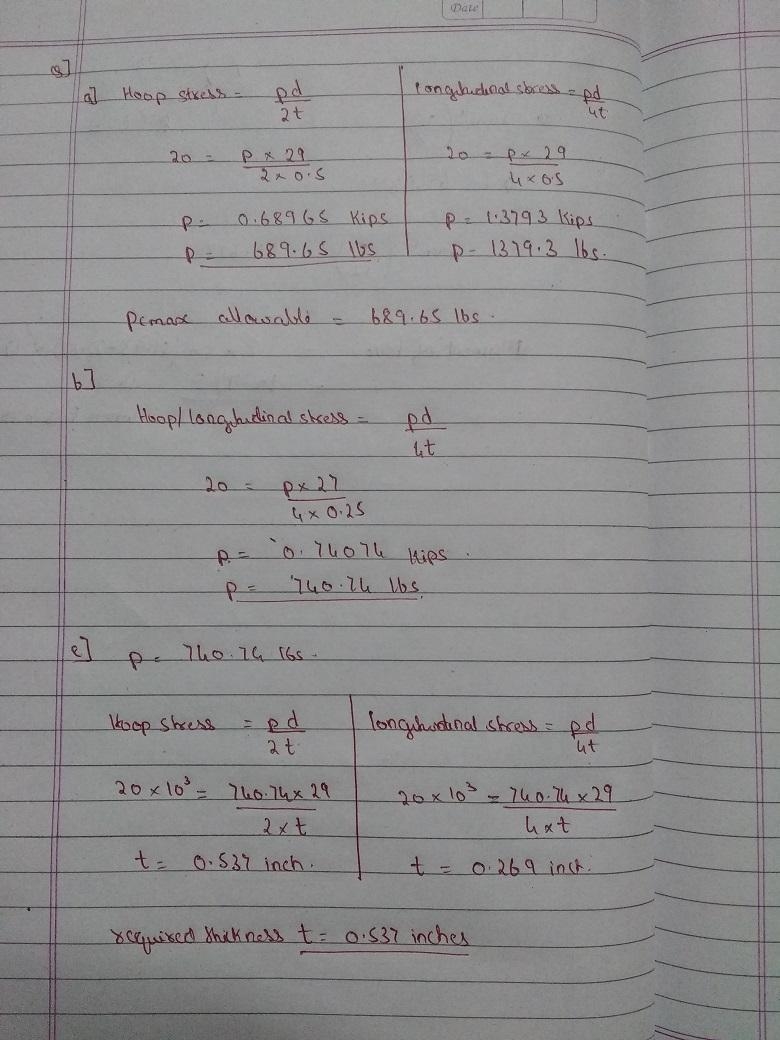 Date
Q]
a] Hoop stress = pd / 2t
20 = P × 29 / 2 × 0.5
P = 0.68965 Kips
P = 689.65 lbs
longitudinal stress = pd / 4t
20 = P × 29 / 4 × 0.5
P = 1.3793 Kips
P = 1379.3 lbs.
Pcmax allowable = 689.65 lbs.
b]
Hoop/longitudinal stress = pd / 4t
20 = P × 27 / 4 × 0.25
P = 0.74074 Kips.
P = 740.74 lbs
c] P = 740.74 lbs.
Hoop stress = pd / 2t
20 × 10³ = 740.74 × 29 / 2 × t
t = 0.537 inch.
longitudinal stress = pd / 4t
20 × 10³ = 740.74 × 29 / 4 × t
t = 0.269 inch.
required thickness t = 0.537 inches